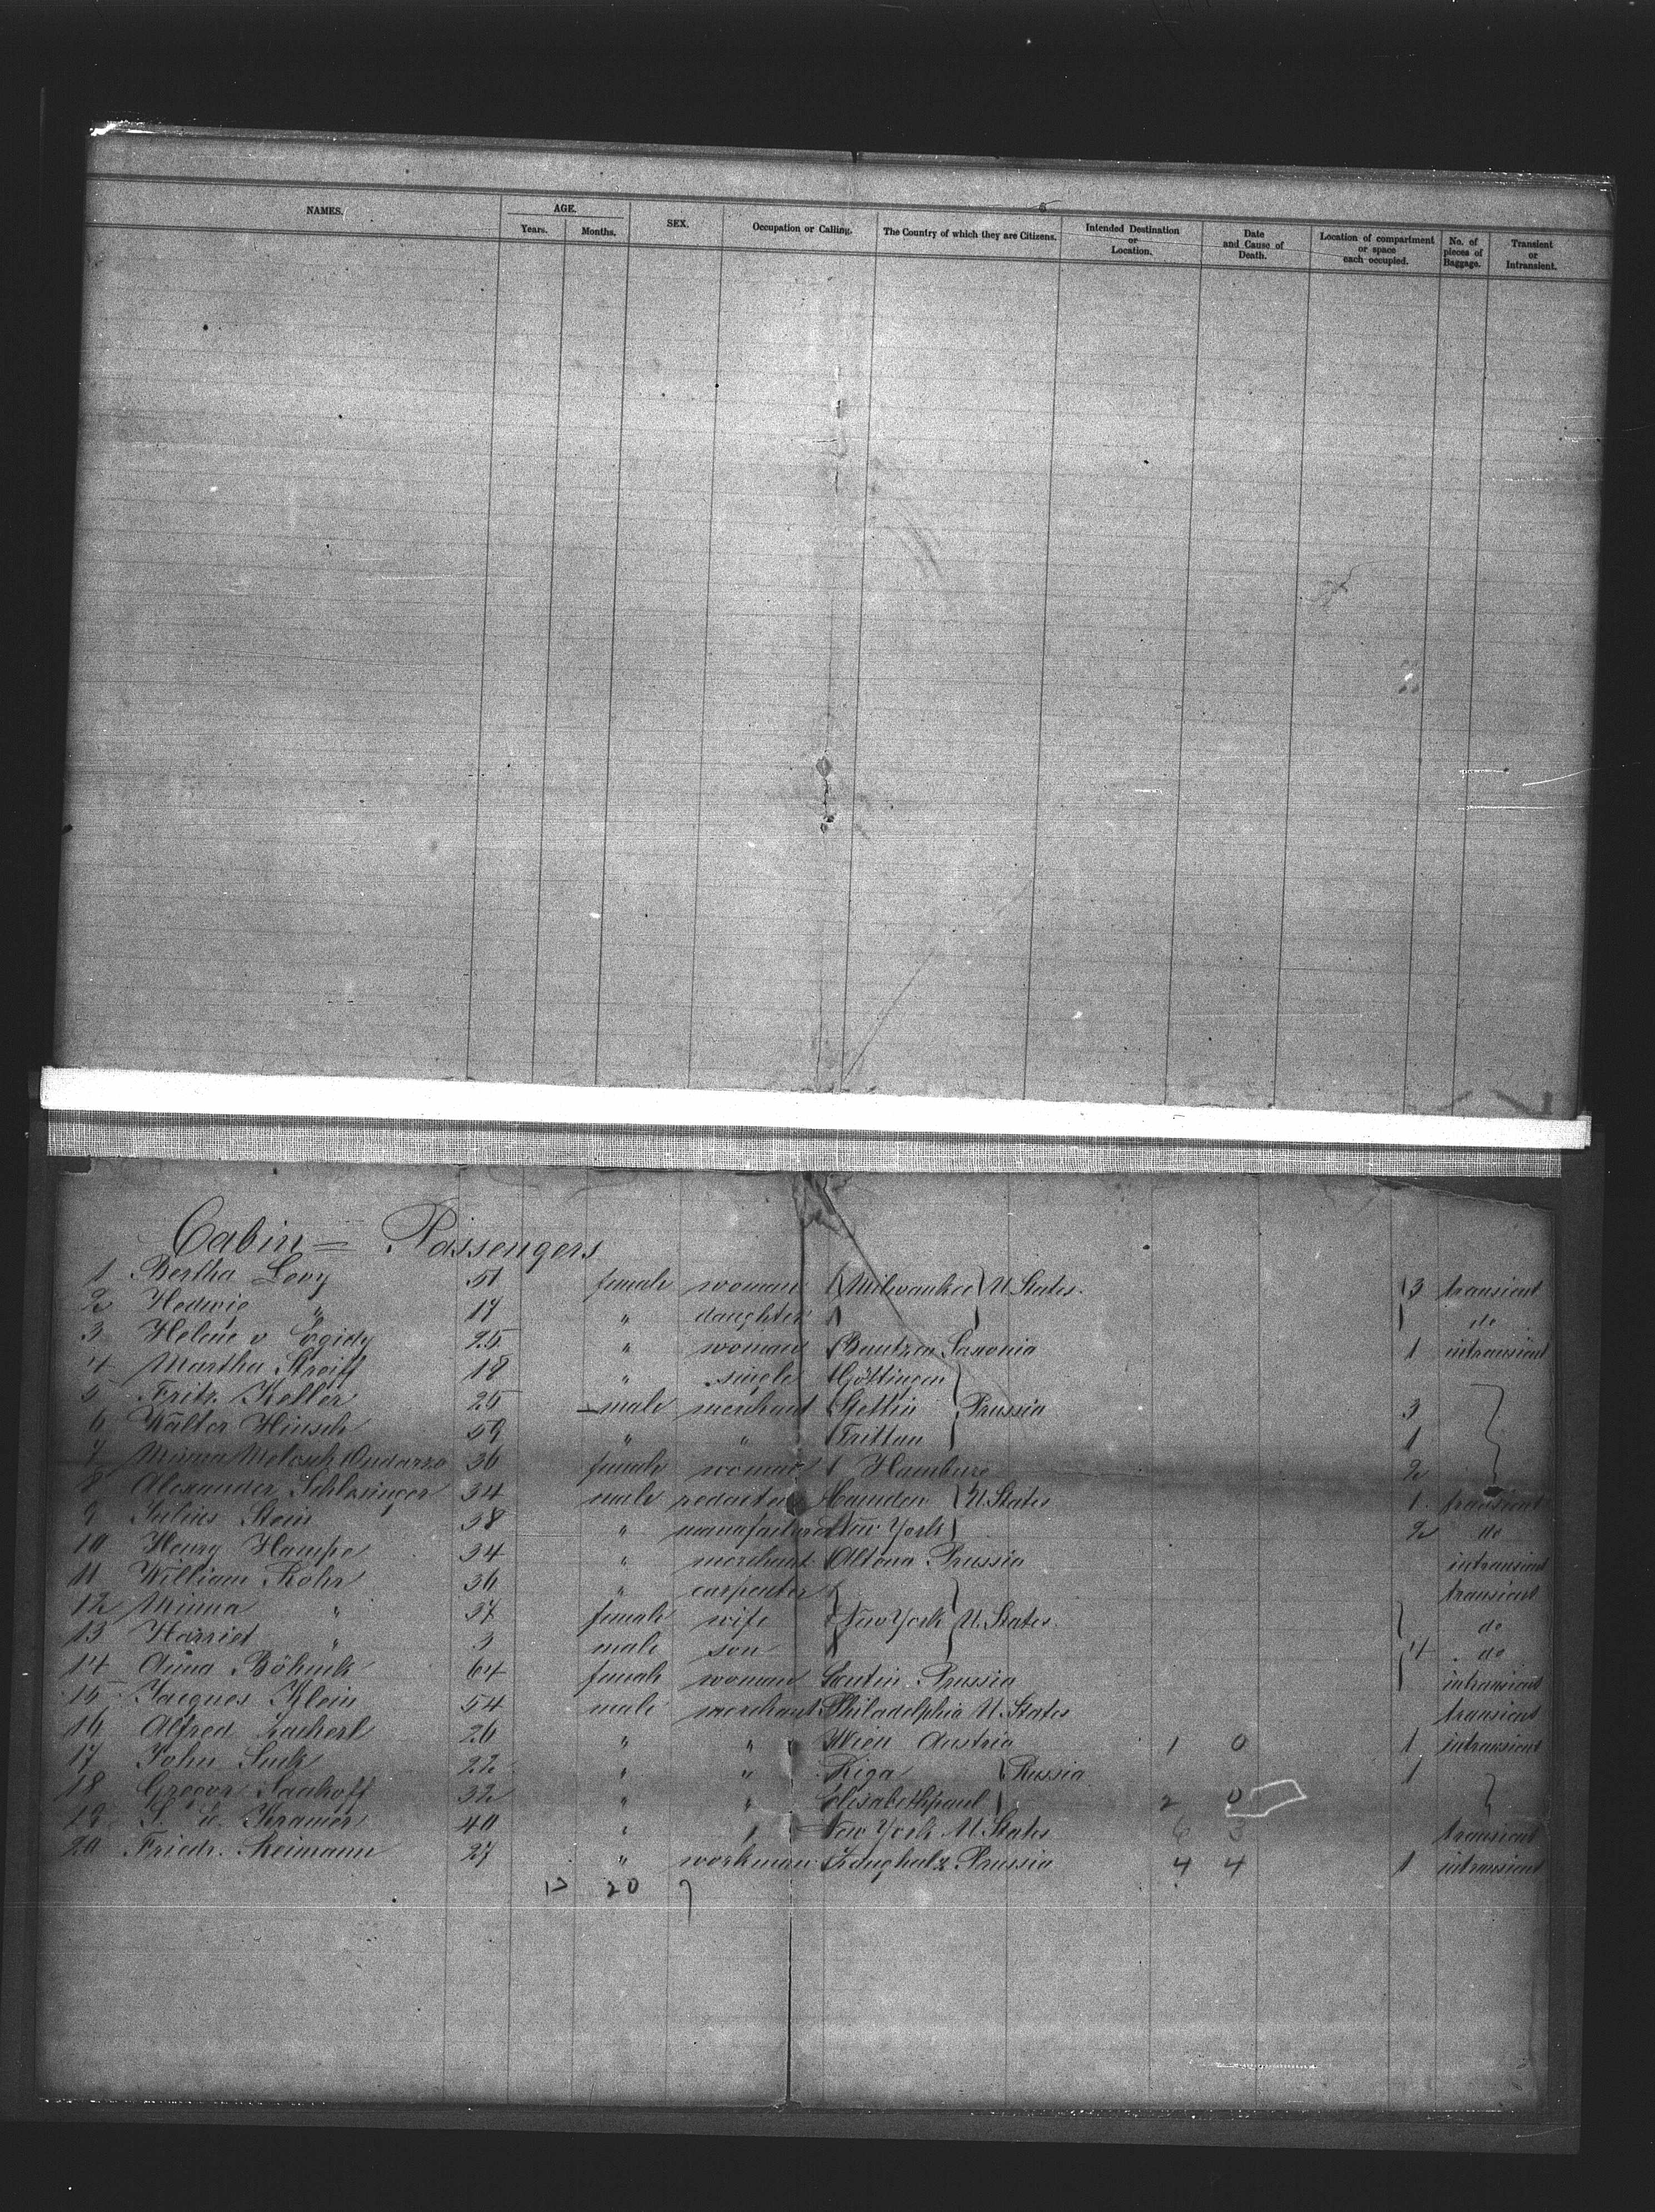 NAMES. AGE. Years. Months. SEX. Occupation or Calling. The Country of which they are Citizens. Intended Destination or Location. Date and Cause of Death. Location of compartment or space each occupied. No. of pieces of Baggage. Transient or Intransient.
Cabin = Passengers
1 Bertha Levy 51 female woman Milwaukee U States. 3 transient
2 Hedwig " 17 " daughter do
3 Helene v Egidy 25 " woman Bautzen Saxonia 1 intransient
4 Martha Streiff 18 " single Göttingen
5 Fritz Keller 25 male merchant Stettin Prussia 3
6 Walter Hinsch 59 " " Trittau 1
7 Minna 36 female woman Hamburg 2
8 Alexander Schlesinger 34 male Camden U States 1 transient
9 Julius Stein 38 " manufacturer New York 2 do
10 Henry Hampe 34 " merchant Altona Prussia intransient
11 William Rohr 36 " carpenter transient
12 Minna " 37 female wife New York U. States. do
13 Harriet " 3 male son 4 do
14 Anna Böhnck 64 female woman Prussia intransient
15 Jacques Klein 54 male merchant Philadelphia U. States transient
16 Alfred 26 " " Wien Austria 1 0 1 intransient
17 John 22 " " Riga Russia 1
18 Gregor 32 " " 2 0
19 Kramer 40 " New York U States 6 3 transient
20 Friedr. Reimann 27 " workman Prussia 4 4 1 intransient
13 20 7